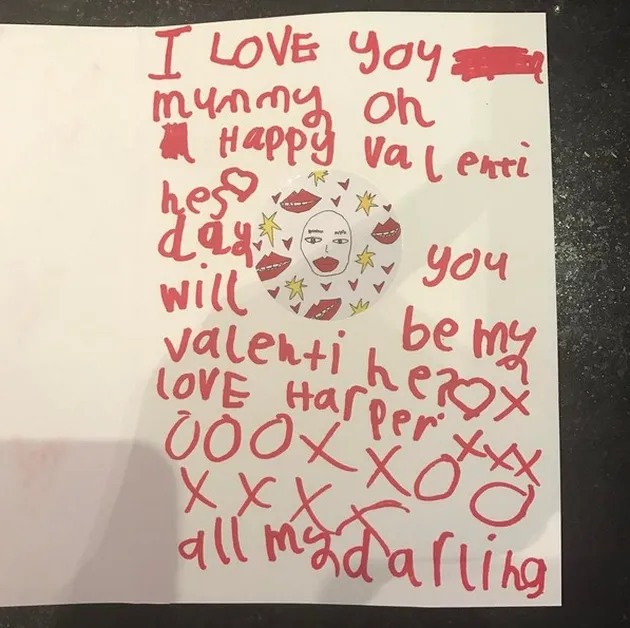 I LOVE you
mummy oh
Happy valenti
nes♡
day
you
will
be my
valentine?♡x
LOVE Harper
OOOX XXX
XO
XXXX O
all my darling